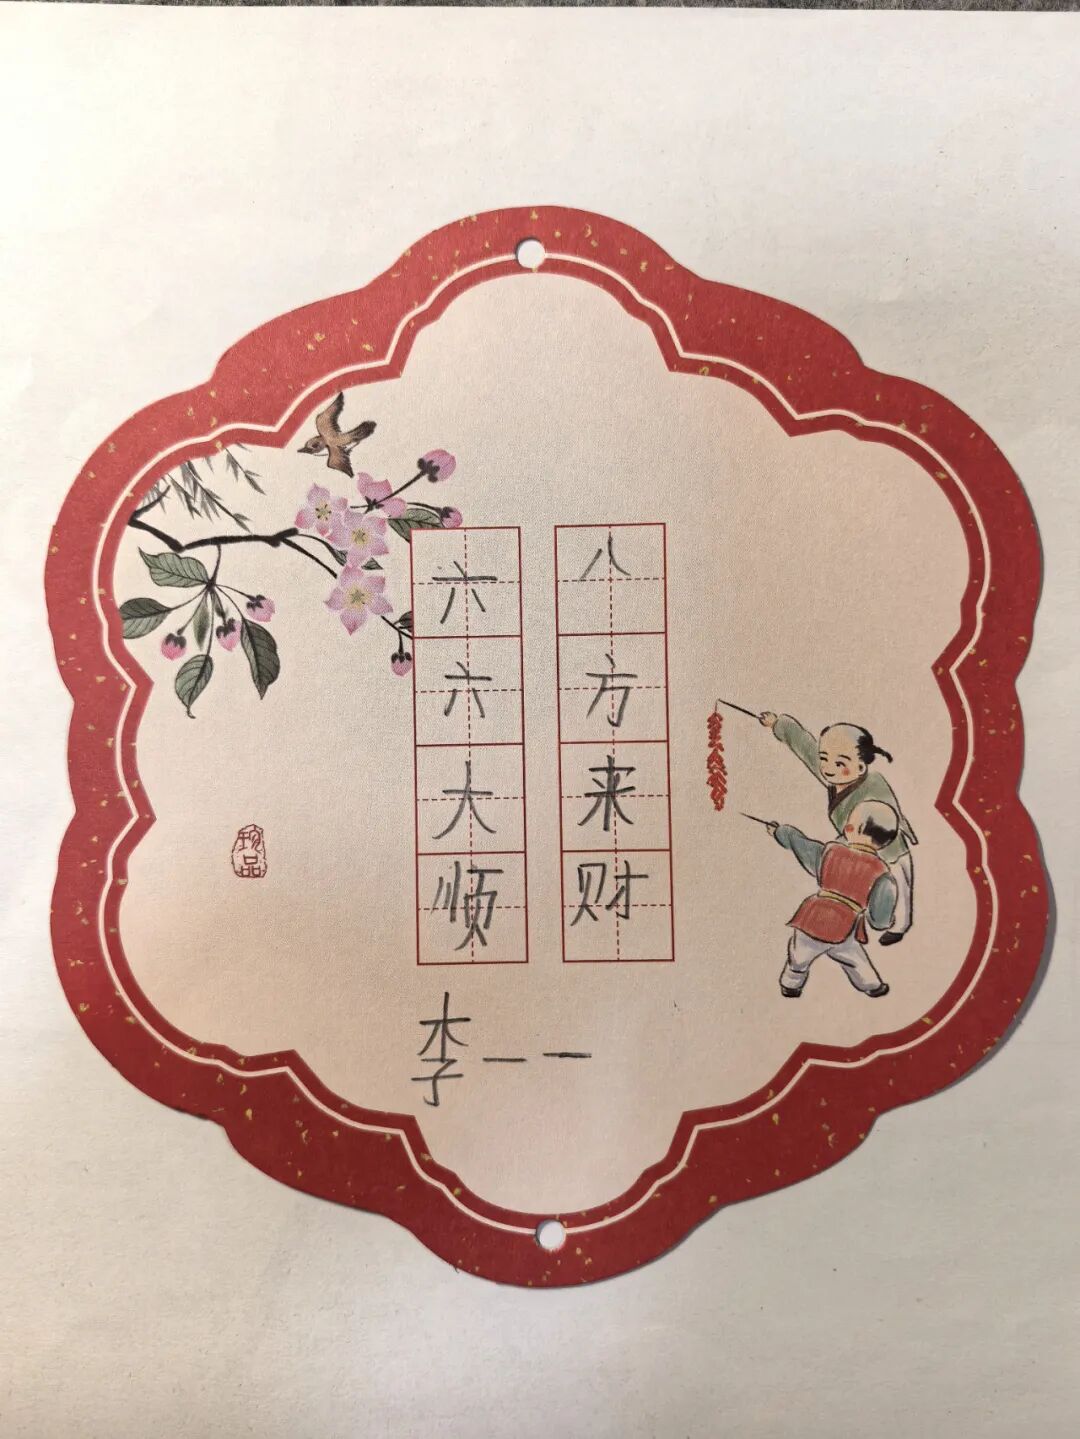 八方来财
六六大顺
李一一
珍品